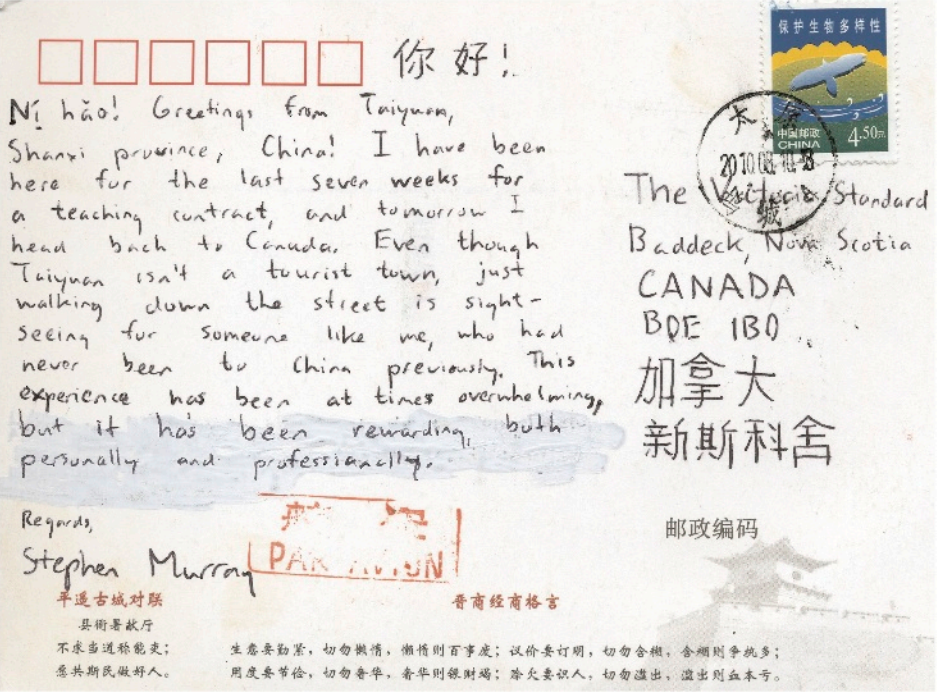 你好!
Nǐ hǎo! Greetings from Taiyuan,
Shanxi province, China! I have been
here for the last seven weeks for
a teaching contract, and tomorrow I
head back to Canada. Even though
Taiyuan isn't a tourist town, just
walking down the street is sight-
seeing for someone like me, who had
never been to China previously. This
experience has been at times overwhelming,
but it has been rewarding, both
personally and professionally.
Regards,
Stephen Murray
保护生物多样性
中国邮政
CHINA
4.50元
太原
2010.08.10.18
城
The Victoria Standard
Baddeck, Nova Scotia
CANADA
B0E 1B0
加拿大
新斯科舍
PAR AVION
邮政编码
平遥古城对联
县衙署献厅
不求当道称能吏;
愿共斯民做好人。
晋商经商格言
生意要勤紧,切勿懒惰,懒惰则百事废;议价要订明,切勿含糊,含糊则争执多;
用度要节俭,切勿奢华,奢华则银财竭;赊欠要识人,切勿滥出,滥出则血本亏。